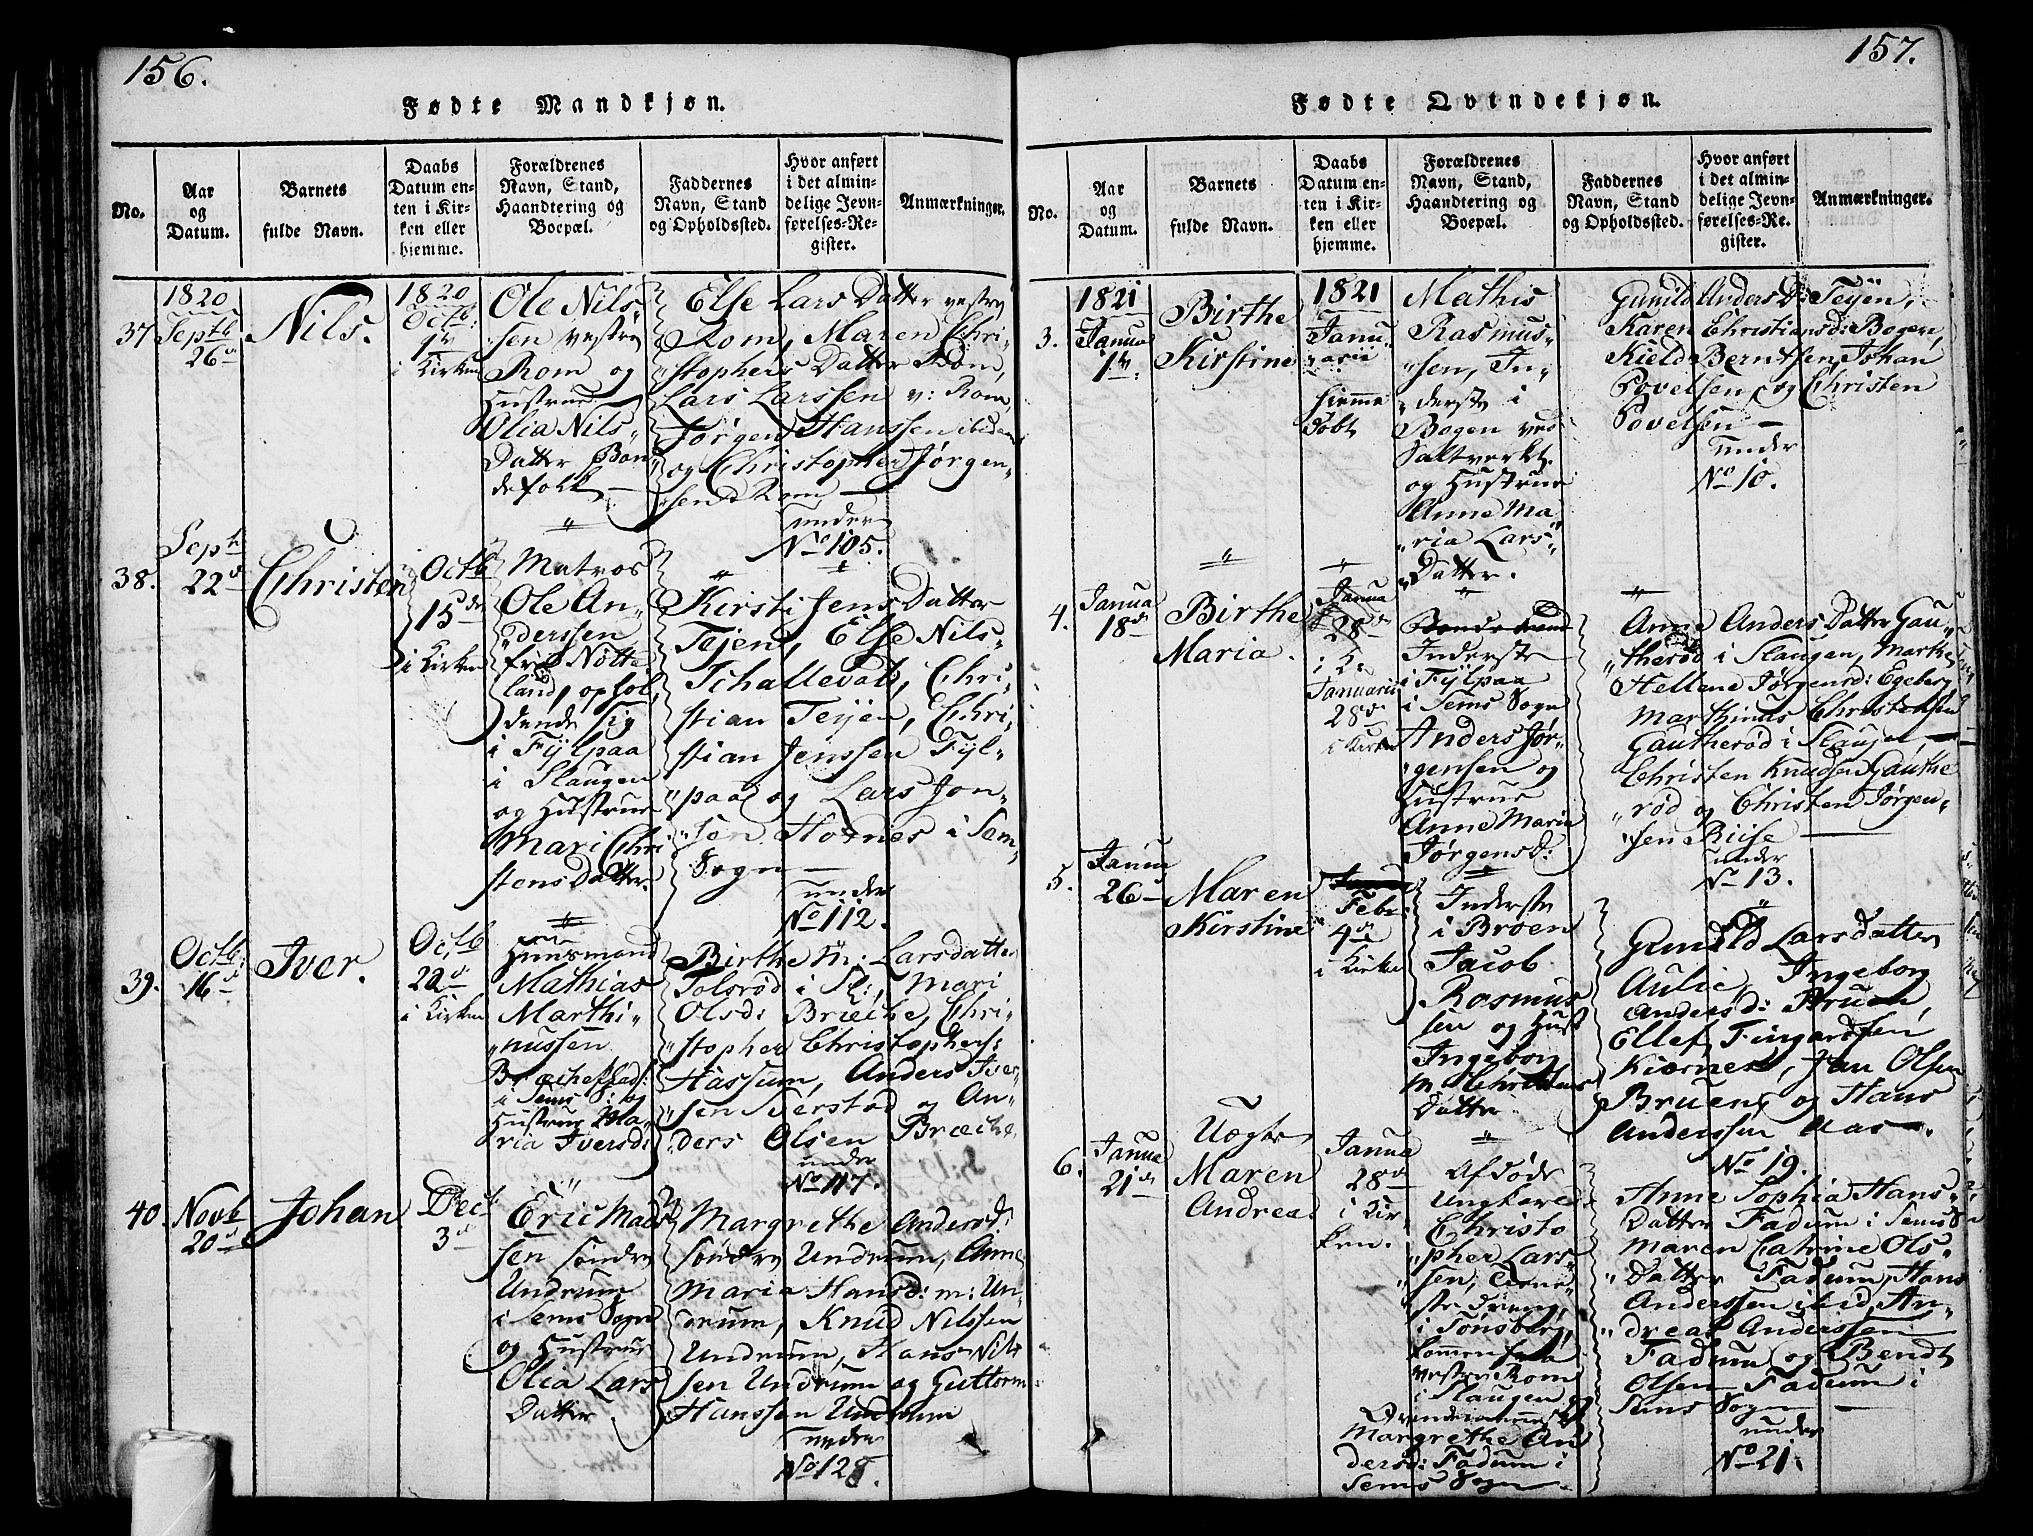 156.
Fødte Mandkjøn.
No.
Aar
og
Datum.
Barnets
fulde Navn.
Daabs
Datum en-
ten i Kir-
ken eller
hjemme.
Forældrenes
Navn, Stand,
Haandtering og
Boepæl.
Faddernes
Navn, Stand
og Opholdssted.
Hvor anført
i det almin-
delige Jevn-
førelses-Re-
gister.
Anmærkninger.
37
1820
Septb
26
Nils.
1820
Octb:
1
i Kirken
Ole Nils-
sen vestre
Rom og
Hustrue
Olia Nils
Datter Bon
defolk
Else Lars Datter vestre
Rom, Maren Chri-
stophers Datter Rom,
Lars Larssen v: Rom,
Jørgen Hanssen ibidem
og Christopher Jørgen
sen Rom
under
No 105.
38.
Septb
22
Christen
Octb
15de
i Kirken
Matros
Ole An-
derssen
fra Nøtte
land, ophol
dende sig
i Fylpaa
i Slaugen
og Hustrue
Mari Chri
stens Datter.
Kirsti Jens Datter
Tejen, Else Nils
Schallevald, Chri-
stian Tejen, Chri-
stian Jenssen Fyl-
paa og Lars Jon-
søn Hoxnes i Sem
Sogn
under
No 112.
39.
Octb
16
Iver.
Octb
22
i Kirken
Huusmand
Mathias
Marthi-
nussen
i Sems S: og
Hustrue Ma-
ria Iversd:
Birthe M: Larsdatter
Tolsrød i Sl:, Mari
Olsd: Bræche, Chri-
stopher Christophers:
Hassum, Anders Iver-
sen Sverstad og An-
ders Olsen Bræche
under
No 117.
40.
Novb
20
Johan
Decb
3
Eric Mads
sen søndre
Undrum
i Sems Sogn
og Hustrue
Olia Lars
Datter
Margrethe Andersd:
søndre Undrum, Anne
Maria Hansd: m: Un-
drum, Knud Nilssen
Undrum, Hans Nils
sen Undrum og Guttorm
Hanssen Undrum
under
No 128.
157.
Fødte Qvindekjøn.
No.
Aar
og
Datum.
Barnets
fulde Navn.
Daabs
Datum en-
ten i Kir-
ken eller
hjemme.
Forældrenes
Navn, Stand,
Haandtering og
Boepæl.
Faddernes
Navn, Stand
og Opholdssted.
Hvor anført
i det almin-
delige Jevn-
førelses-Re-
gister.
Anmærkninger.
3.
1821
Janua
1
Birthe
Kirstine
1821
Janu-
arii
hiemme
døbt
Mathis
Rasmus-
sen, In-
derste i
Bogen ved
Saltverket
og Hustrue
Anne Ma
ria Lars
Datter.
Gunild Anders D: Tejen,
Karen Christiansd: Bogen,
Kield Berntsen, Johan
Povelsen, og Christen
Povelsen
under
No 10.
4.
Janua
18
Birthe
Maria.
Janua
28
i Ki
Januarii
28
i Kirken
Inderste
i Fylpaa
i Sems Sogn
Anders Jør-
gensen og
Hustrue
Anne Maria
Jørgensd:
Anne Anders Datter Gau-
therød i Slaugen, Marthe
Hellene Jørgensd: Egeberg
Marthinus Christensen
Gautherød i Slaugen,
Christen Knudsen Gauthe
rød og Christen Jørgen-
sen Riise
under
No 13.
5.
Janua
26
Maren
Kirstine
Febr:
4
i Kirken
Inderste
i Broen
Jacob
Rasmus
sen og Hust
Ingeborg
M: Christens
Datter
Gunild Larsdatter
Aulie, Ingeborg
Andersd: Bruen,
Ellef Fingardsen
Kiærnes, Jan Olsen
Bruen, og Hans
Anderssen Aas
No 19.
6.
Janua
21
Uægte
Maren
Andrea
Janua
28
i Kir-
ken.
Afdøde
Ungkarl
Christo
pher Lars-
sen,
i Tønsberg,
kommen fra
vestre Rom
i Slaugen og
Margrethe An
dersd: Fadum i
Sems Sogn
Anne Sophia Hans-
Datter Fadum i Sems S
Maren Catrine Ols-
Datter Fadum, Hans
Anderssen ibid, An-
dreas Anderssen
Fadum og Bendt
Olsen Fadum i
Sems Sogn
under
No 21.